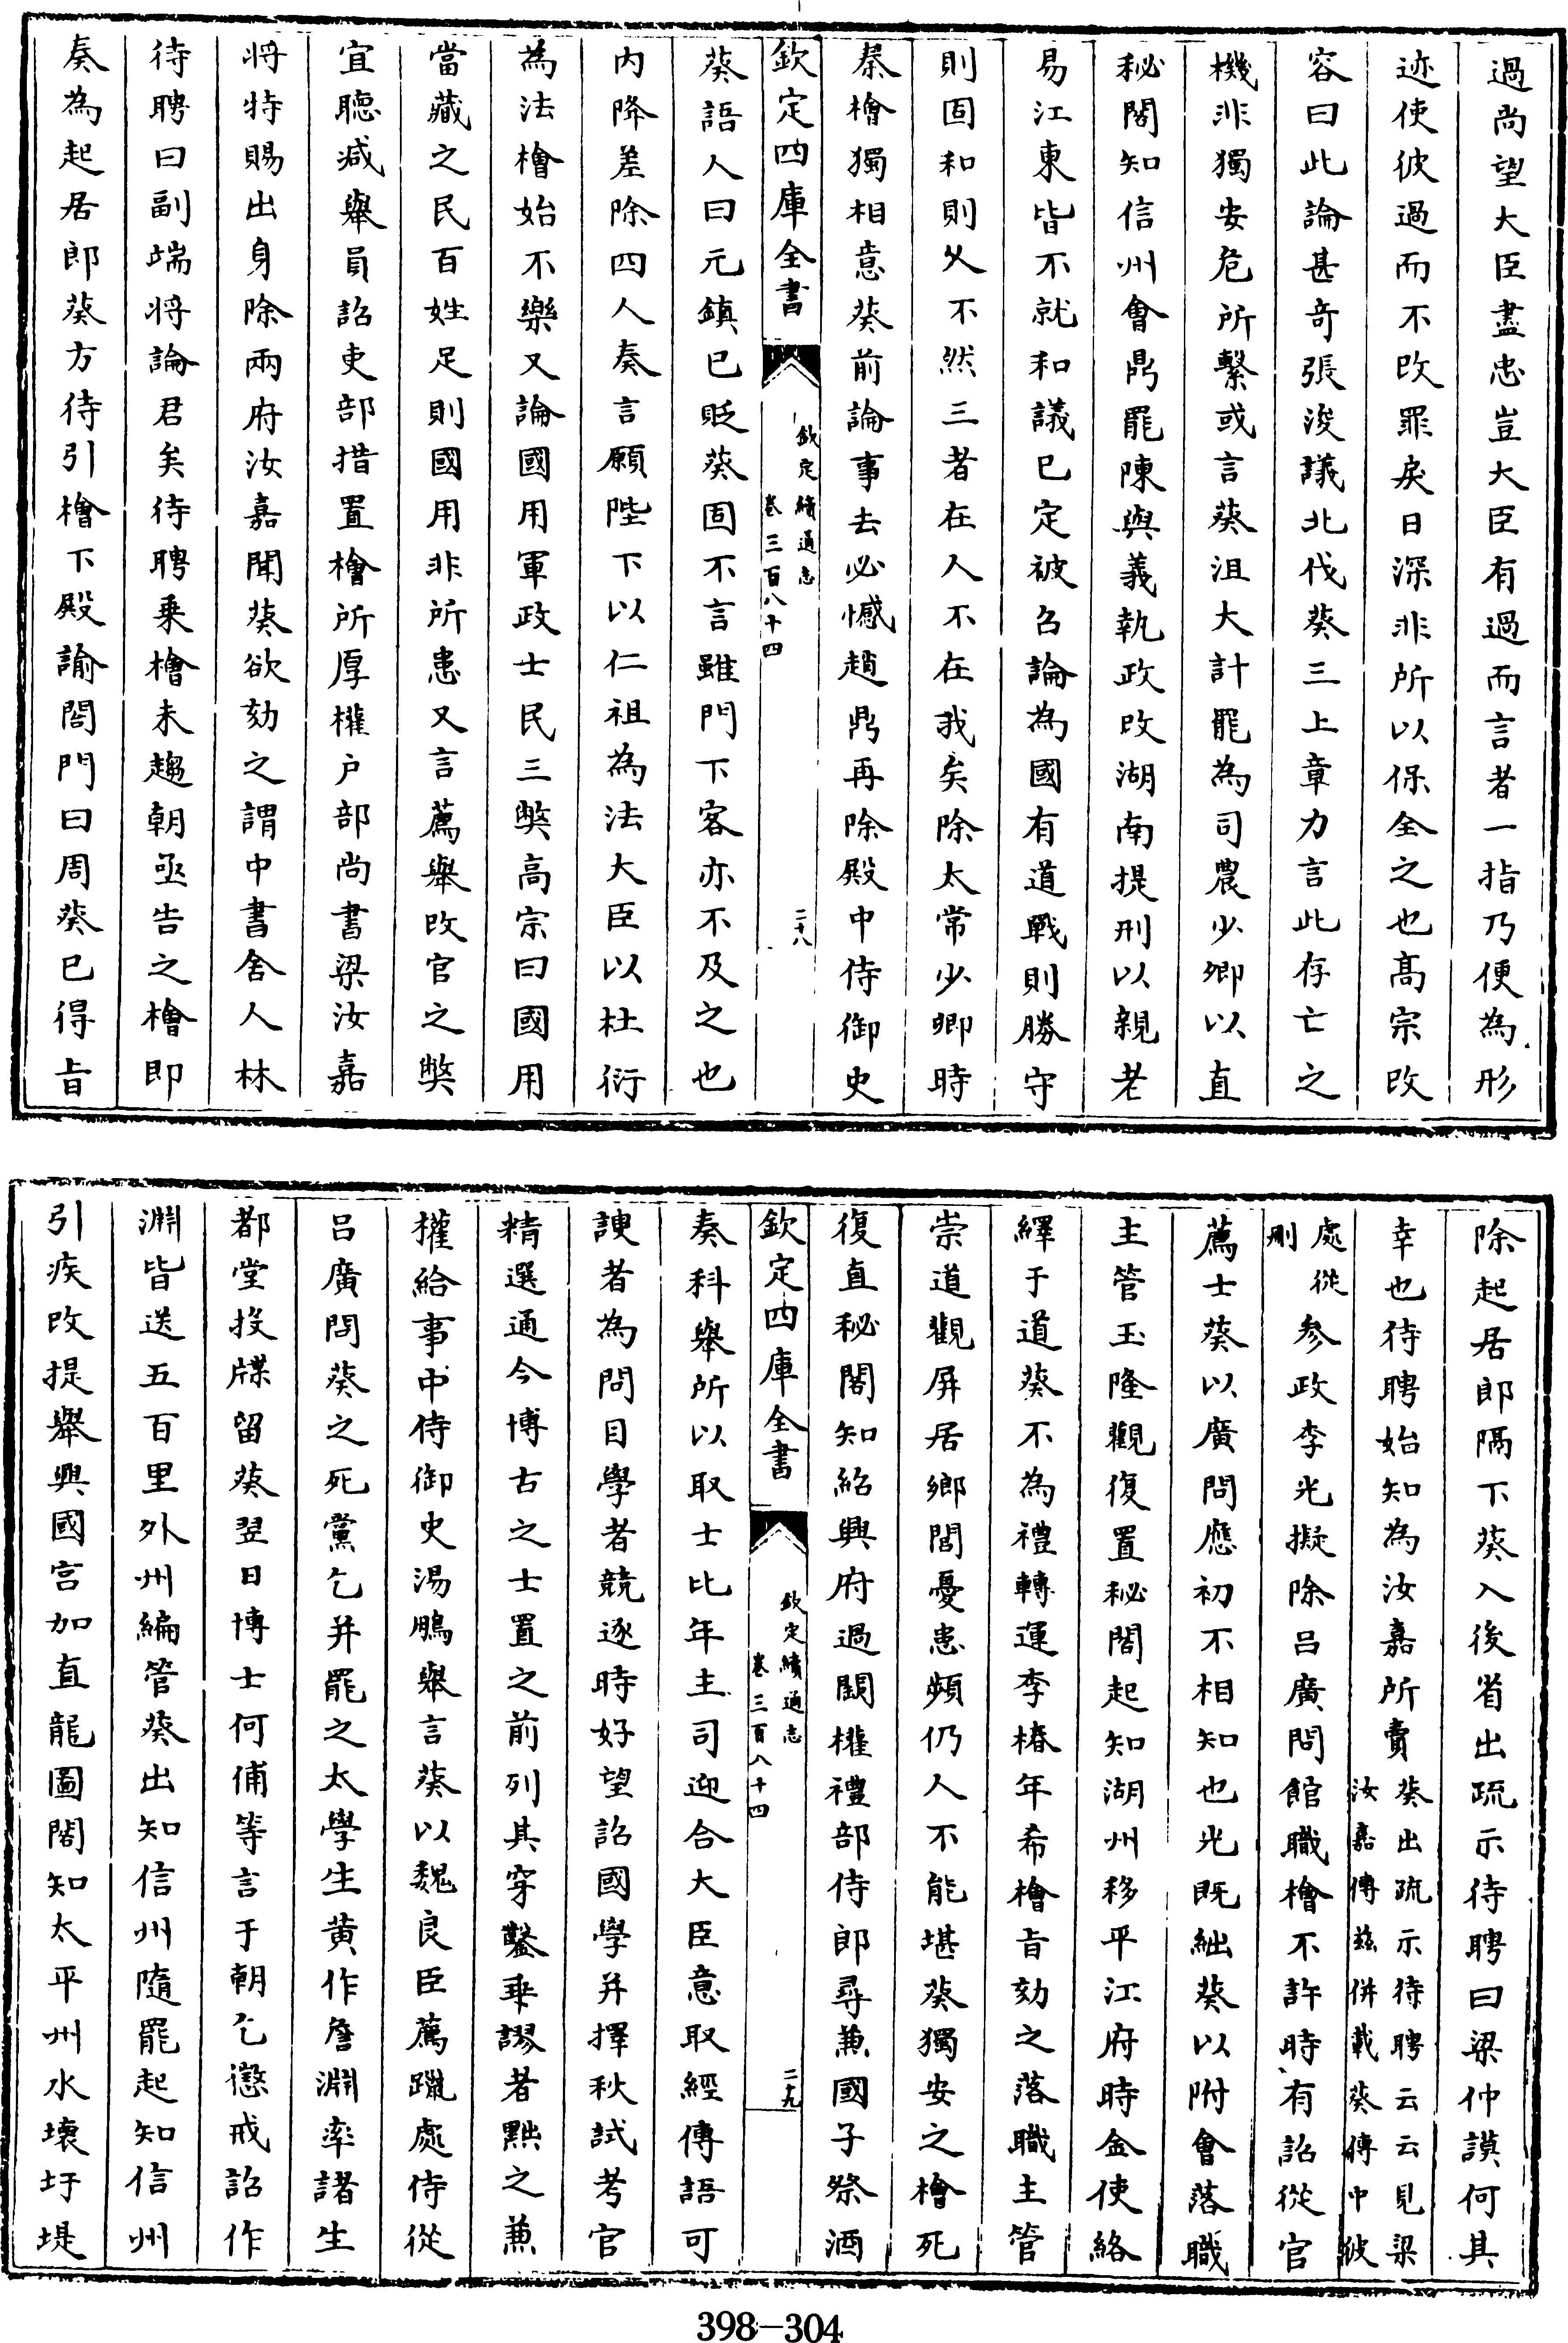 過尚望大臣盡忠豈大臣有過而言者一指乃便為形
迹使彼過而不改罪戾日深非所以保全之也高宗改
容曰此論甚竒張浚議北伐葵三上章力言此存亡之
機非獨安危所繫或言葵沮大計罷為司農少卿以直
秘閣知信州會鼎罷陳與義執政改湖南提刑以親老
易江東皆不就和議已定被召論為國有道戰則勝守
則固和則久不然三者在人不在我矣除太常少卿時
秦檜獨相意葵前論事去必憾趙鼎再除殿中侍御史
欽定四庫全書
欽定續通志
卷三百八十四
二十八
葵語人曰元鎮已貶葵固不言雖門下客亦不及之也
内降差除四人奏言願陛下以仁祖為法大臣以杜衍
為法檜始不樂又論國用軍政士民三弊高宗曰國用
當藏之民百姓足則國用非所患又言薦舉改官之弊
宜聽減舉員詔吏部措置檜所厚權户部尚書梁汝嘉
將特賜出身除兩府汝嘉聞葵欲劾之謂中書舍人林
待聘曰副端將論君矣待聘乗檜未趨朝亟告之檜即
奏為起居郎葵方待引檜下殿諭閤門曰周葵已得旨
除起居郎隔下葵入後省出疏示待聘曰梁仲謨何其
幸也待聘始知為汝嘉所賣
葵出疏示待聘云云見梁
汝嘉傳兹併載葵傳中彼
處從
刪
参政李光擬除吕廣問館職檜不許時有詔從官
薦士葵以廣問應初不相知也光既絀葵以附會落職
主管玉隆觀復置秘閣起知湖州移平江府時金使絡
繹于道葵不為禮轉運李椿年希檜旨劾之落職主管
崇道觀屏居鄉閭憂患頻仍人不能堪葵獨安之檜死
復直秘閣知紹興府過闕權禮部侍郎尋兼國子祭酒
欽定四庫全書
欽定續通志
卷三百八十四
二十九
奏科舉所以取士比年主司迎合大臣意取經傳語可
諛者為問目學者競逐時好望詔國學并擇秋試考官
精選通今博古之士置之前列其穿鑿乖謬者黜之兼
權給事中侍御史湯鵬舉言葵以魏良臣薦躐處侍從
吕廣問葵之死黨乞并罷之太學生黄作詹淵率諸生
都堂投牒留葵翌日博士何俌等言于朝乞懲戒詔作
淵皆送五百里外州編管葵出知信州隨罷起知信州
引疾改提舉興國宫加直龍圖閣知太平州水壊圩堤
398-304